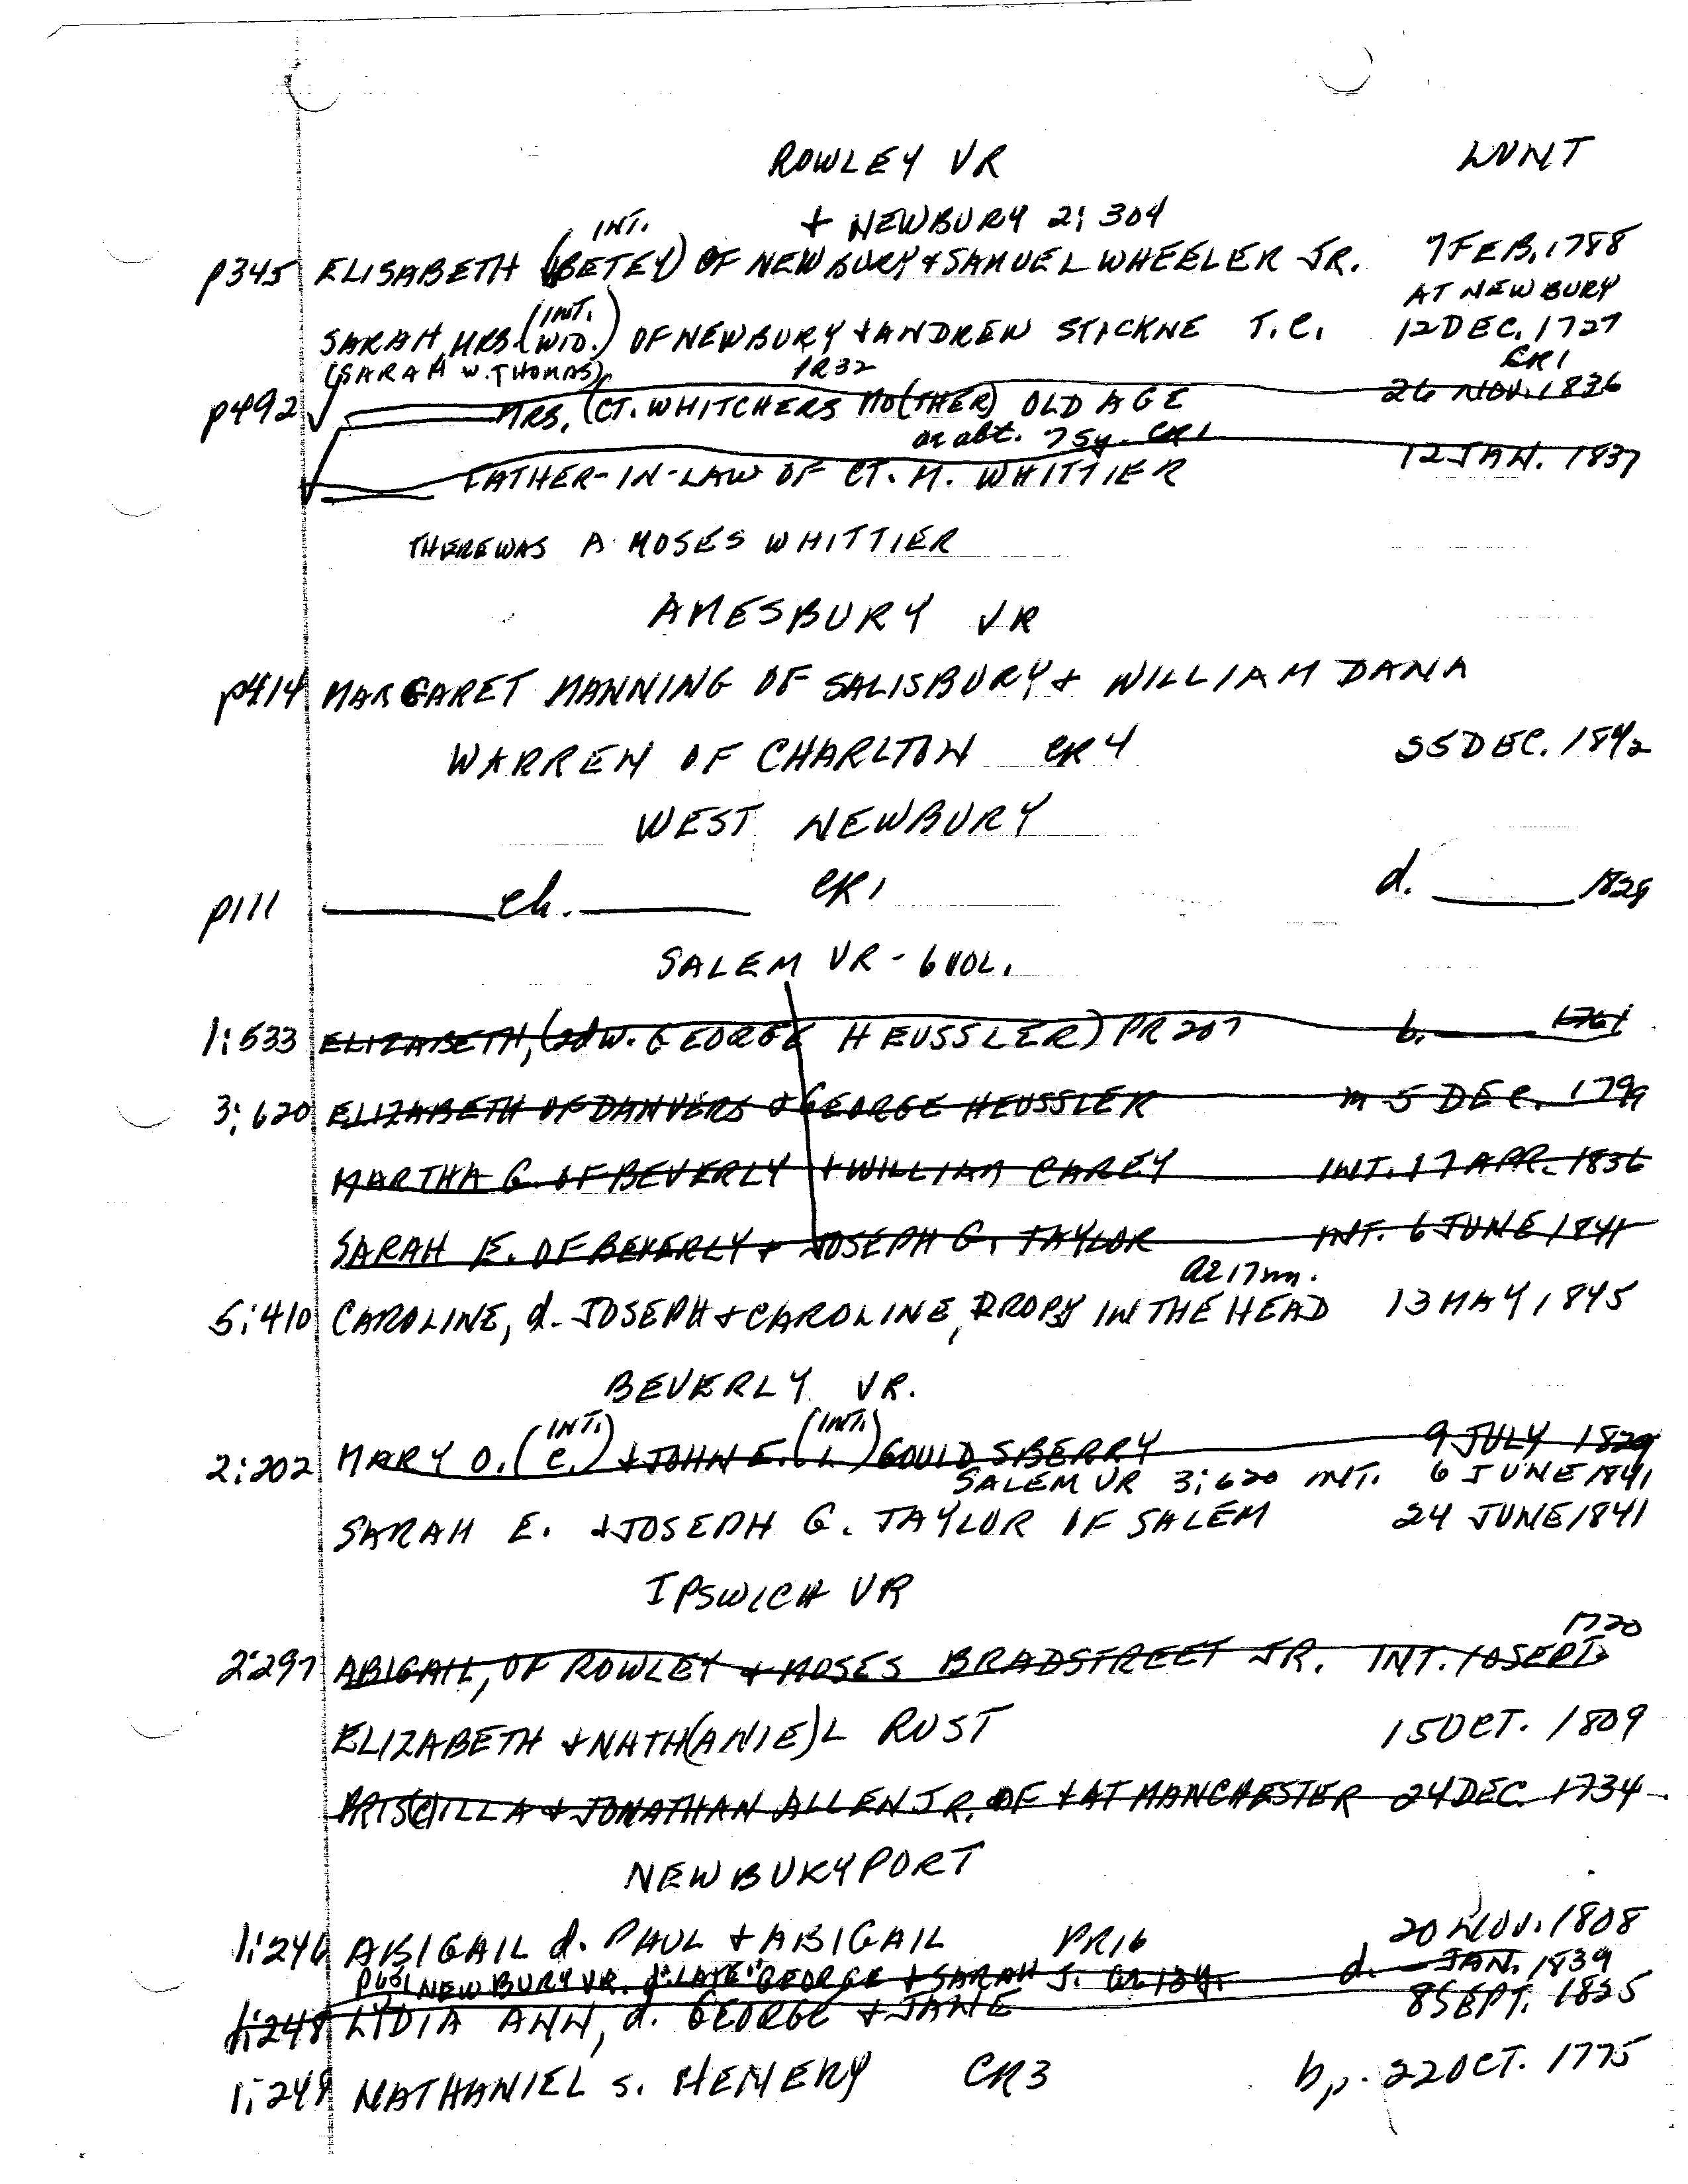 ROWLEY VR LUNT
INT. + NEWBURY 2:304
p345 ELISABETH (BETEY) OF NEWBURY + SAMUEL WHEELER JR. 7 FEB. 1788
(INT. AT NEWBURY
SARAH, MRS (WID.) OF NEWBURY + ANDREW STICKNE T.C. 12 DEC. 1727
(SARAH W. THOMAS) PR32 CR1
p492 MRS. (CT. WHITCHERS MO(THER) OLD AGE 26 NOV. 1836
ae abt. 75y. CR1
FATHER-IN-LAW OF CT. M. WHITTIER 12 JAN. 1837
THERE WAS A MOSES WHITTIER
AMESBURY VR
p414 MARGARET MANNING OF SALISBURY + WILLIAM DANA
WARREN OF CHARLTON CR4 25 DEC. 1842
WEST NEWBURY
p111 ch. CR1 d. 1829
SALEM VR - 6 VOL.
1:533 ELIZABETH, (2d W. GEORGE HEUSSLER) PR207 b. 1761
3:620 ELIZABETH OF DANVERS + GEORGE HEUSSLER m 5 DEC. 1799
MARTHA G. OF BEVERLY + WILLIAM CAREY INT. 17 APR. 1836
SARAH E. OF BEVERLY + JOSEPH G. TAYLOR INT. 6 JUNE 1841
ae 17m.
5:410 CAROLINE, d. JOSEPH + CAROLINE, DROPSY IN THE HEAD 13 MAY 1845
BEVERLY VR.
(INT.) (INT.)
2:202 MARY O. (C.) + JOHN E. (L.) GOULDSBERRY 9 JULY 1829
SALEM VR 3:620 INT. 6 JUNE 1841
SARAH E. + JOSEPH G. TAYLOR OF SALEM 24 JUNE 1841
IPSWICH VR
1720
2:297 ABIGAIL, OF ROWLEY + MOSES BRADSTREET JR. INT. 10 SEPT.
ELIZABETH + NATH(ANIE)L RUST 15 OCT. 1809
PRIS(C)ILLA + JONATHAN ALLEN JR. OF + AT MANCHESTER 24 DEC. 1734
NEWBURYPORT
1:246 ABIGAIL d. PAUL + ABIGAIL PR16 20 NOV. 1808
p661 NEWBURY VR. d. "LATE" GEORGE + SARAH J. ae 13y. d. — JAN. 1839
1:248 LYDIA ANN, d. GEORGE + JANE 8 SEPT. 1825
1:249 NATHANIEL s. HENERY CR3 bp. 22 OCT. 1775